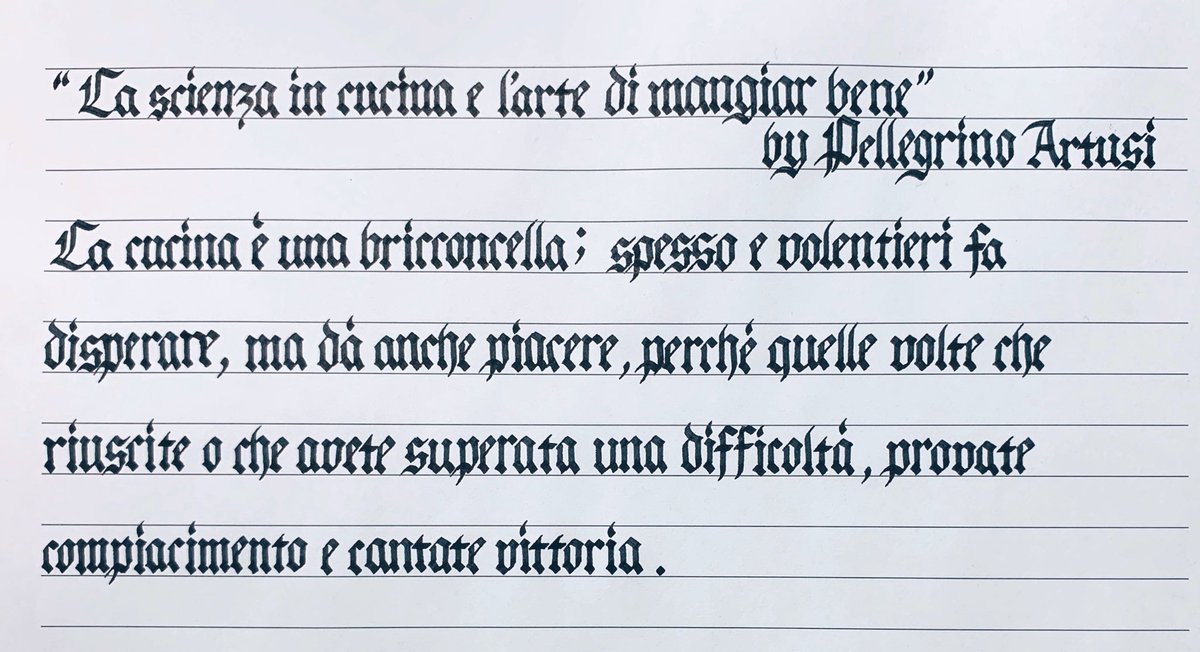 “La scienza in cucina e l'arte di mangiar bene”
by Pellegrino Artusi
La cucina è una bricconcella; spesso e volentieri fa
disperare, ma dà anche piacere, perché quelle volte che
riuscite o che avete superata una difficoltà, provate
compiacimento e cantate vittoria.